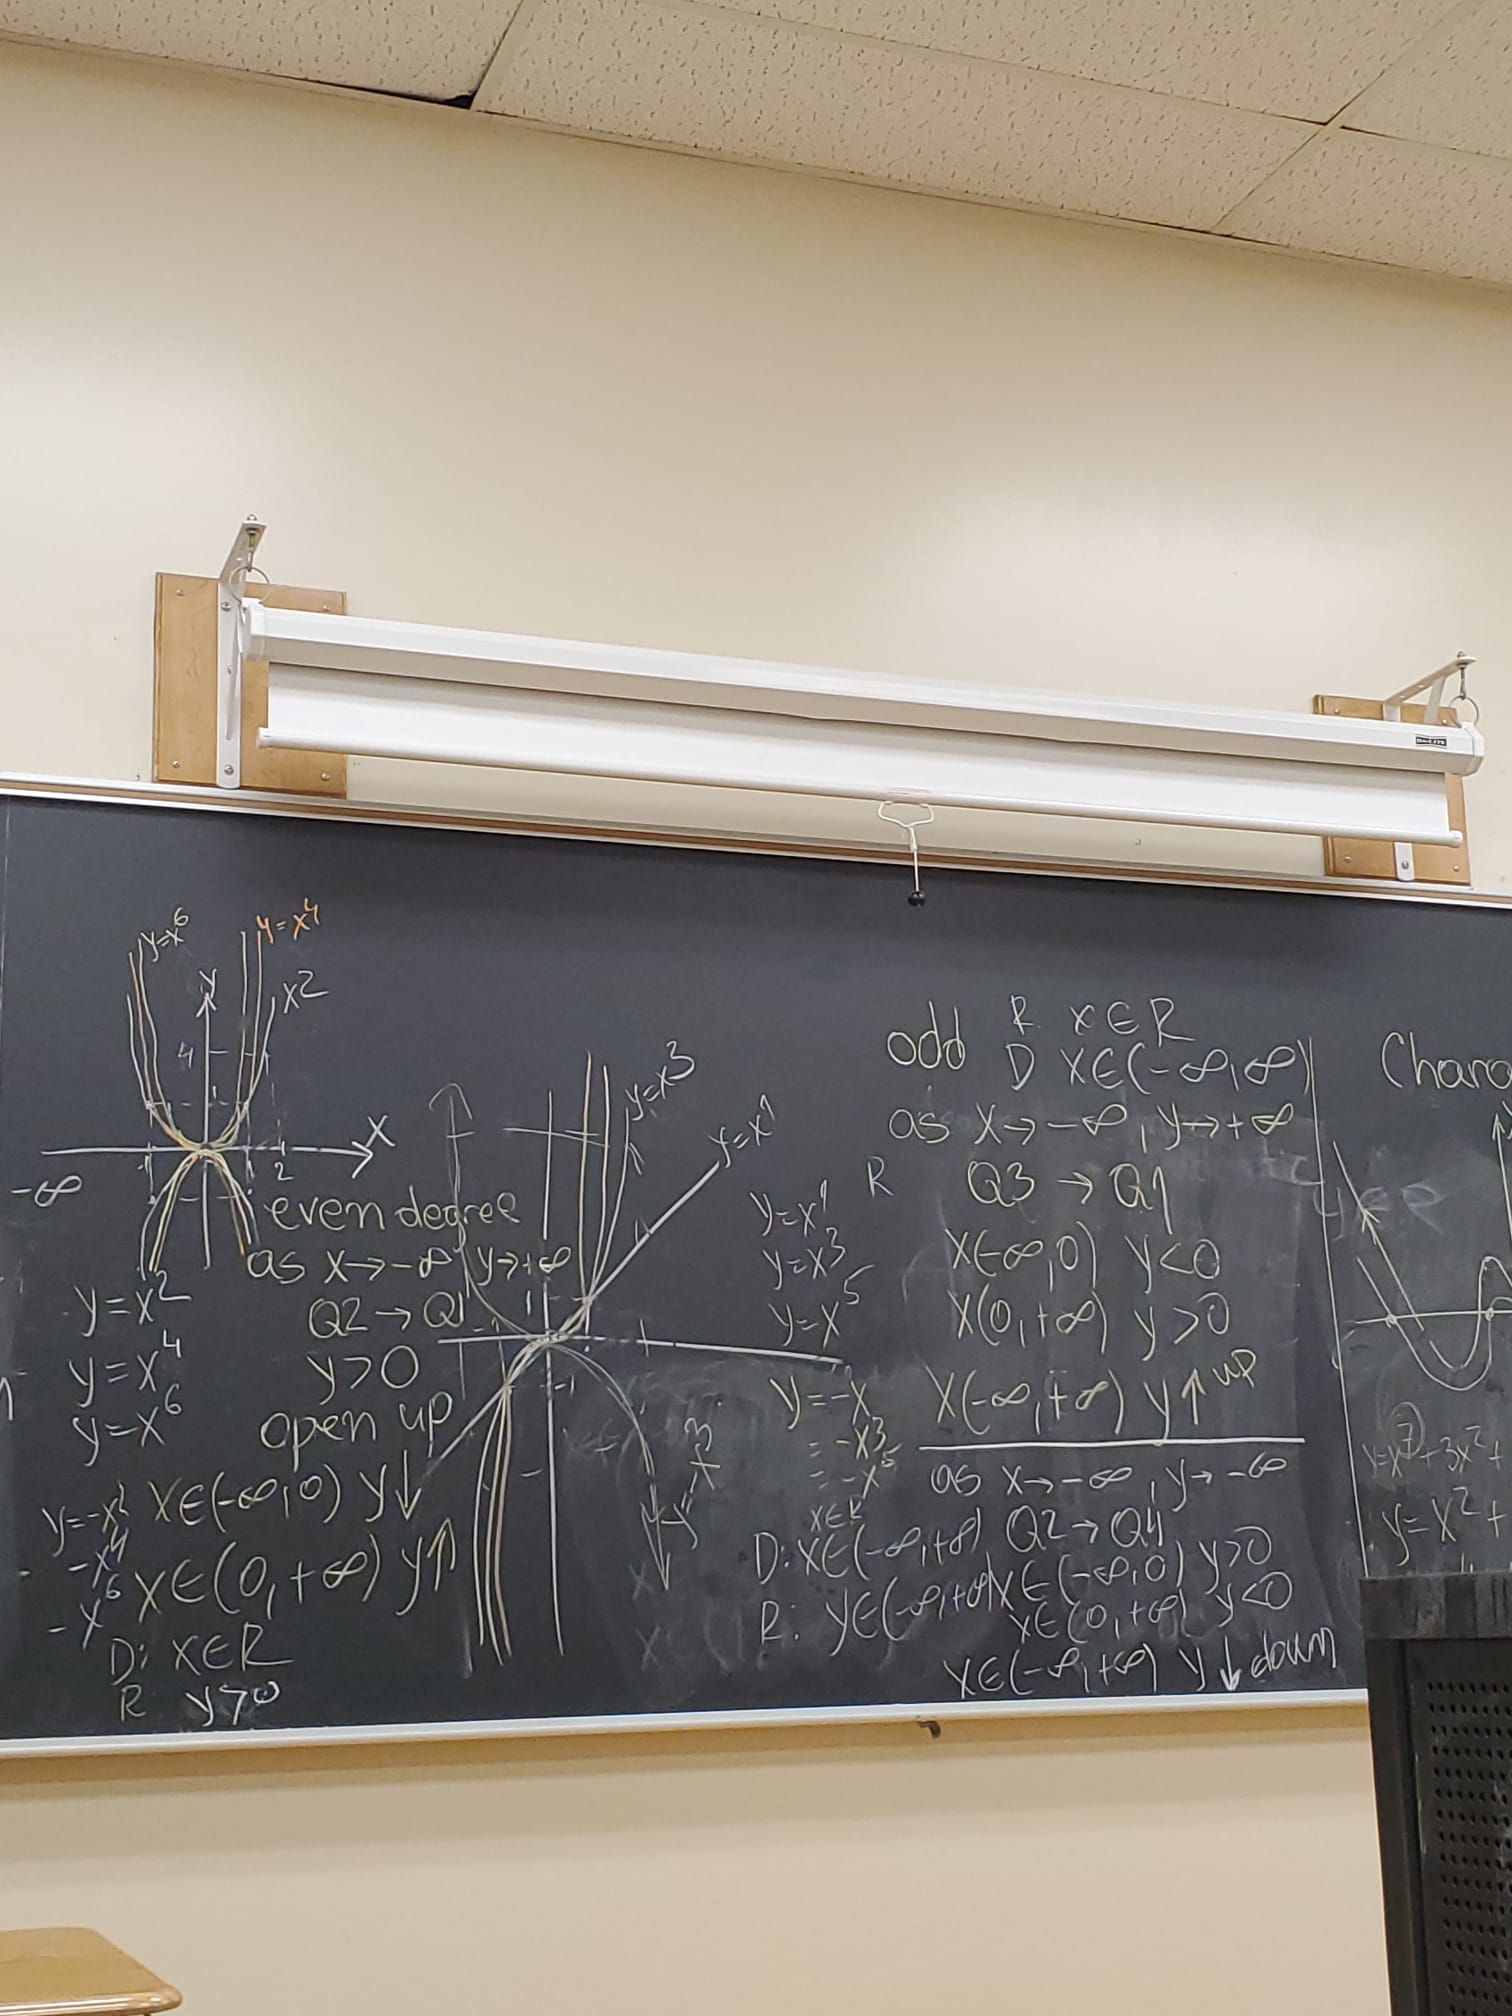 y=x⁶
y=x⁴
y
x2
4
1
X
2
-∞
even degree
as x→-∞ y→+∞
Q2→Q1
y>0
open up
y=x2
y=x⁴
y=x⁶
x∈(-∞,0) y↓
x∈(0,+∞) y↑
-x⁴
-x⁶
D: x∈R
R y>0
y=x3
y=x1
1
-1
-1
y=x1
y=x3
y=x5
y=-x
=-x3
=-x5
x∈R
D: x∈(-∞,+∞)
R: y∈(-∞,+∞)
odd
R x∈R
D x∈(-∞,∞)
as x→-∞, y→+∞
R
Q3→Q1
x(-∞,0) y<0
x(0,+∞) y>0
x(-∞,+∞) y↑ up
as x→-∞, y→-∞
Q2→Q4
x∈(-∞,0) y>0
x∈(0,+∞) y<0
x∈(-∞,+∞) y↓ down
Chara
y=x⁷+3x2+
y=x2+
DA-LITE